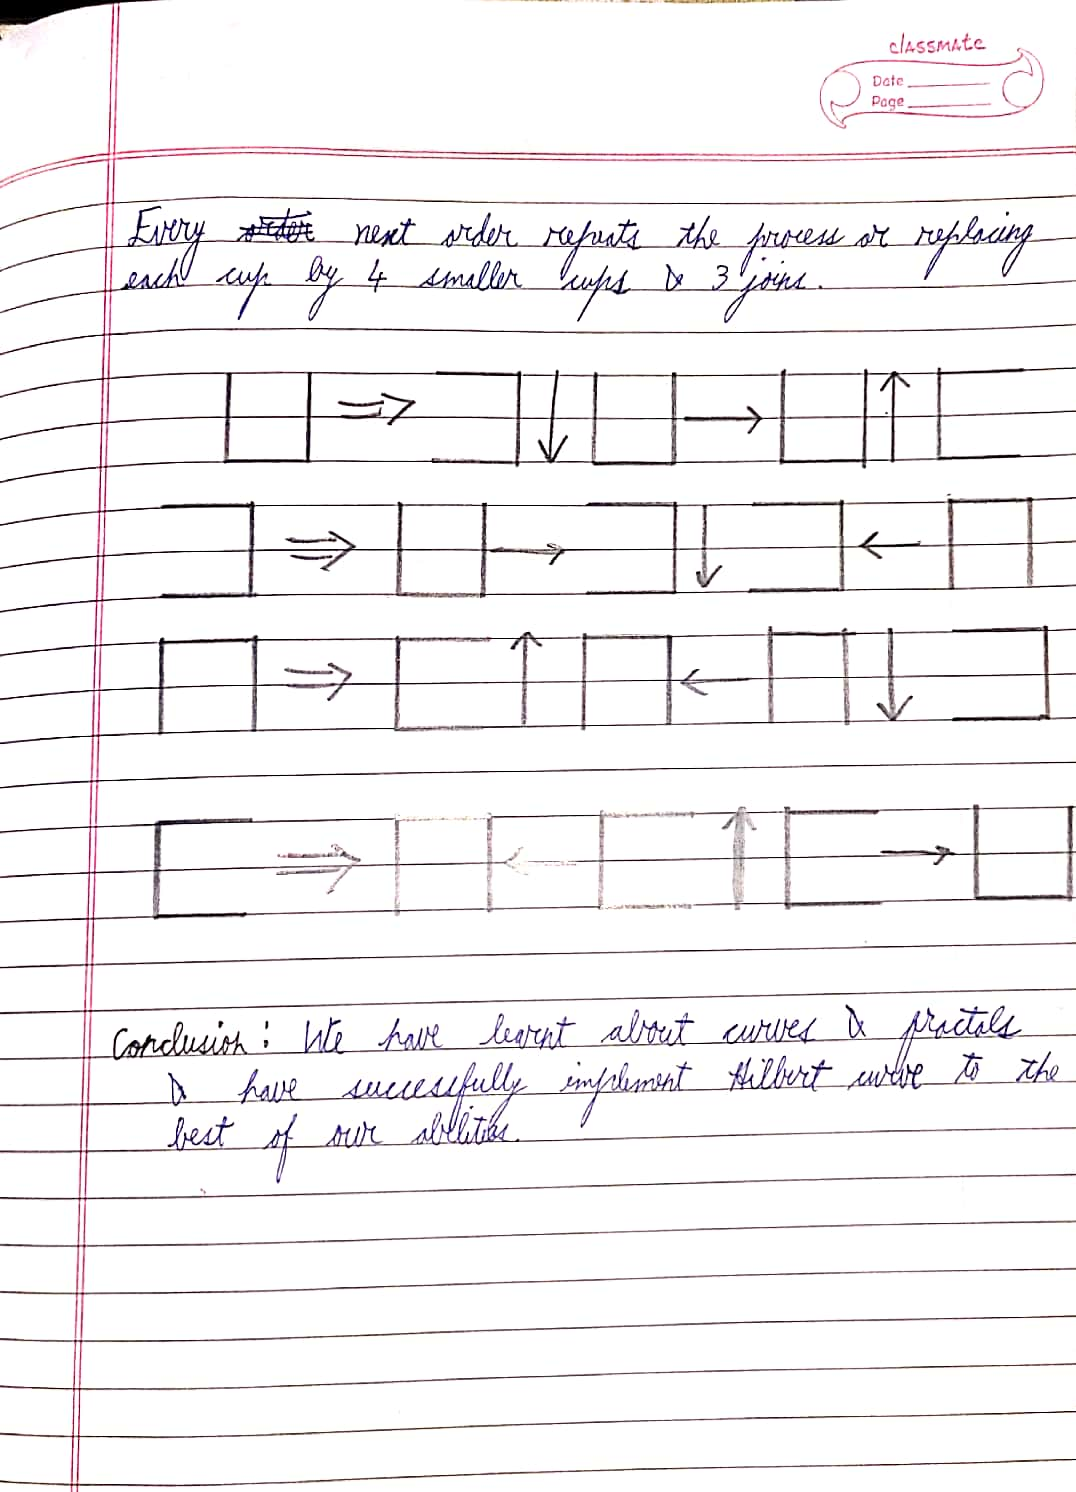 classmate
Date
Page
Every order next order repeats the process or replacing
each cup by 4 smaller cups & 3 joins.
Conclusion: We have learnt about curves & fractals
& have successfully implement Hilbert curve to the
best of our abilities.